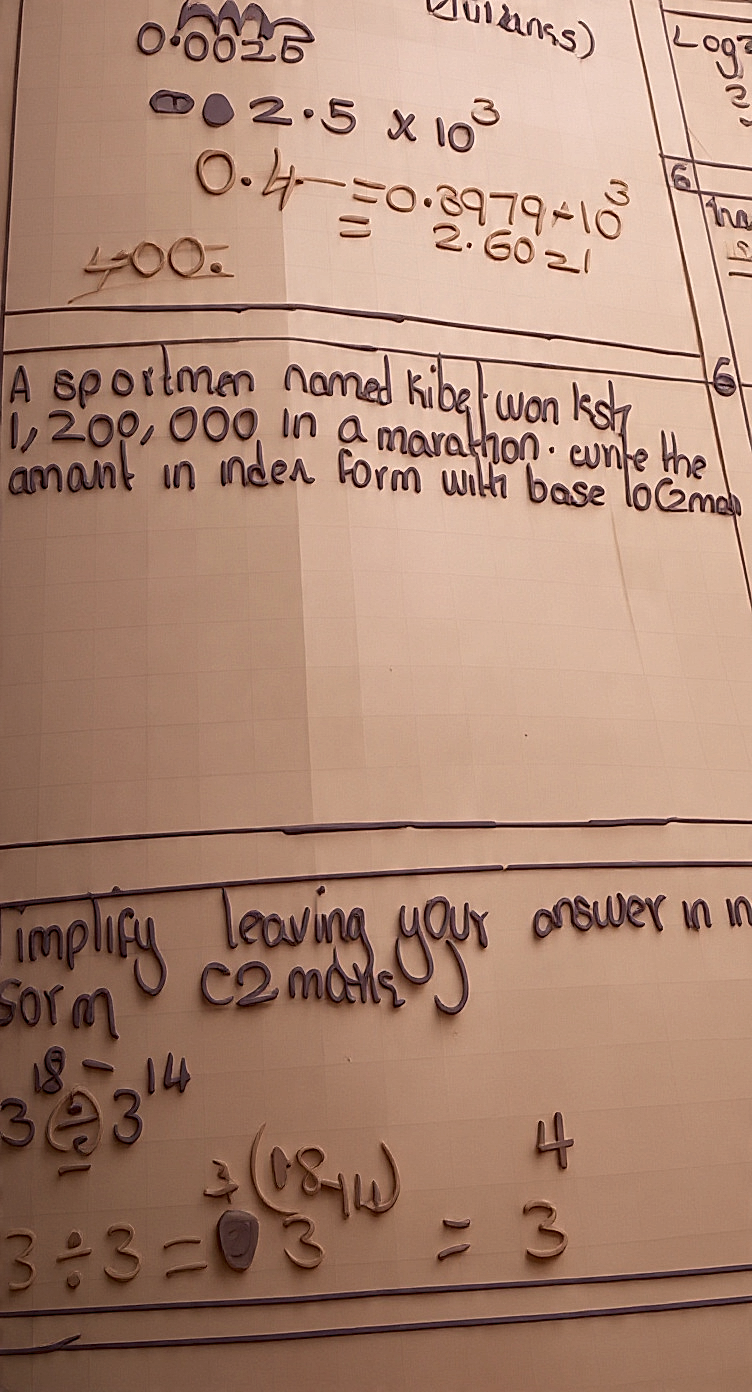 0.0025
Log
2.5 x 10³
0.4 = 0.3979 + 10³
= 2.6021
400.
6
A sportmen named Kibet won Ksh
1,200,000 in a marathon. write the
amant in index form with base 10 (2mar
6
implify leaving your answer in in
form (2 marks
3¹⁸ ÷ 3¹⁴
3 ÷ 3 = 3 (18-14) = 3⁴